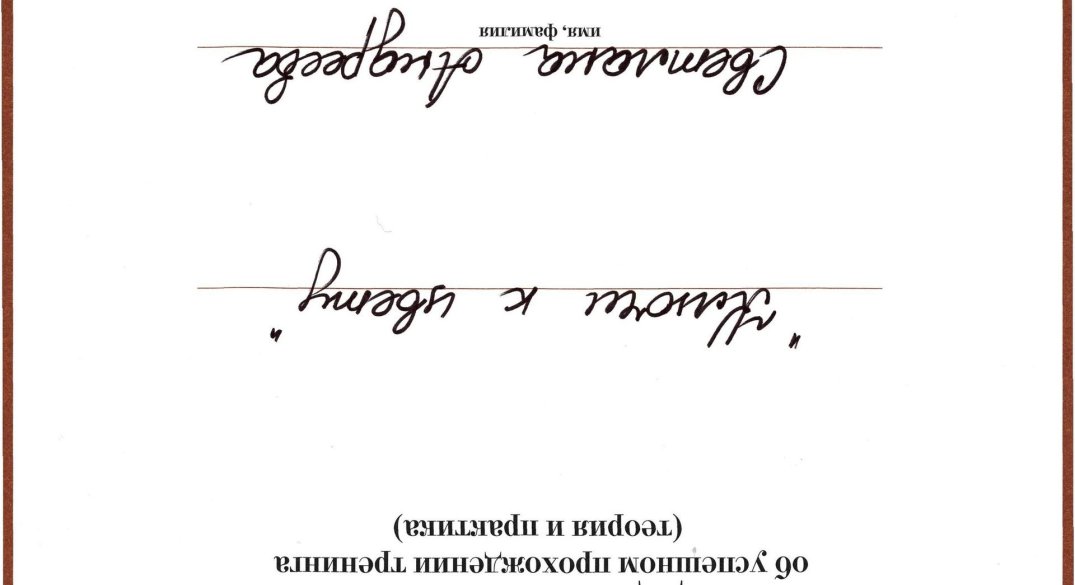 об успешном прохождении тренинга
(теория и практика)
"Ключи к цвету"
Светлана Андреева
имя, фамилия